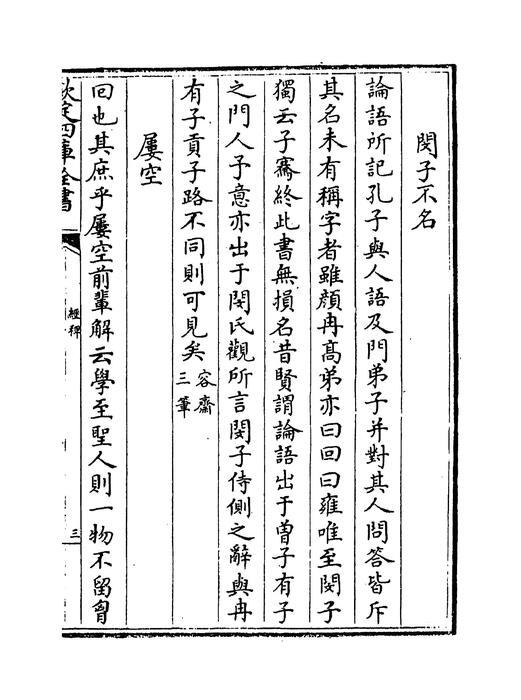 閔子不名
論語所記孔子與人語及門弟子并對其人問答皆斥
其名未有稱字者雖顔冉髙弟亦曰回曰雍唯至閔子
獨云子騫終此書無損名昔賢謂論語出于曽子有子
之門人予意亦出于閔氏觀所言閔子侍側之辭與冉
有子貢子路不同則可見矣容齋三筆
屢空
回也其庶乎屢空前輩解云學至聖人則一物不留胷
欽定四庫全書
經稗
三